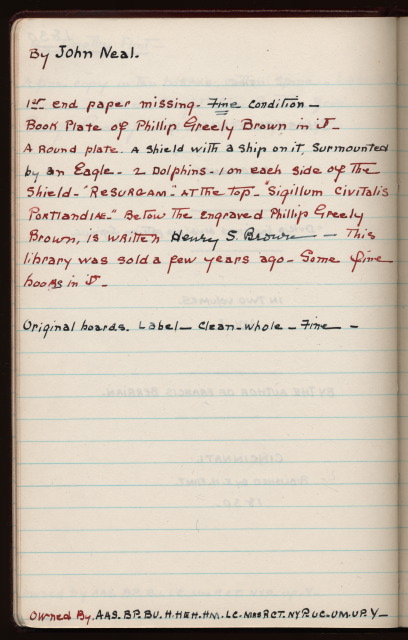 By John Neal.
1st end paper missing - Fine Condition -
Book Plate of Phillip Greely Brown in it -
A Round plate. A Shield with a Ship on it, Surmounted
by an Eagle - 2 Dolphins - 1 on each side of the
Shield - "Resurgam" at the top - "Sigillum Civitatis
Portlandiae." Below the engraved Phillip Greely
Brown, is written Henry S. Brown - This
library was sold a few years ago - Some fine
books in it -
Original boards. Label - Clean - whole - Fine -
Owned By. AAS. BP. BU. H. HEH. HM. LC. MRCT. NYP. UC - UM. UP. Y -